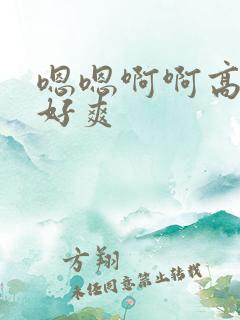 嗯嗯啊啊高
好爽
方翔
未经同意禁止转载